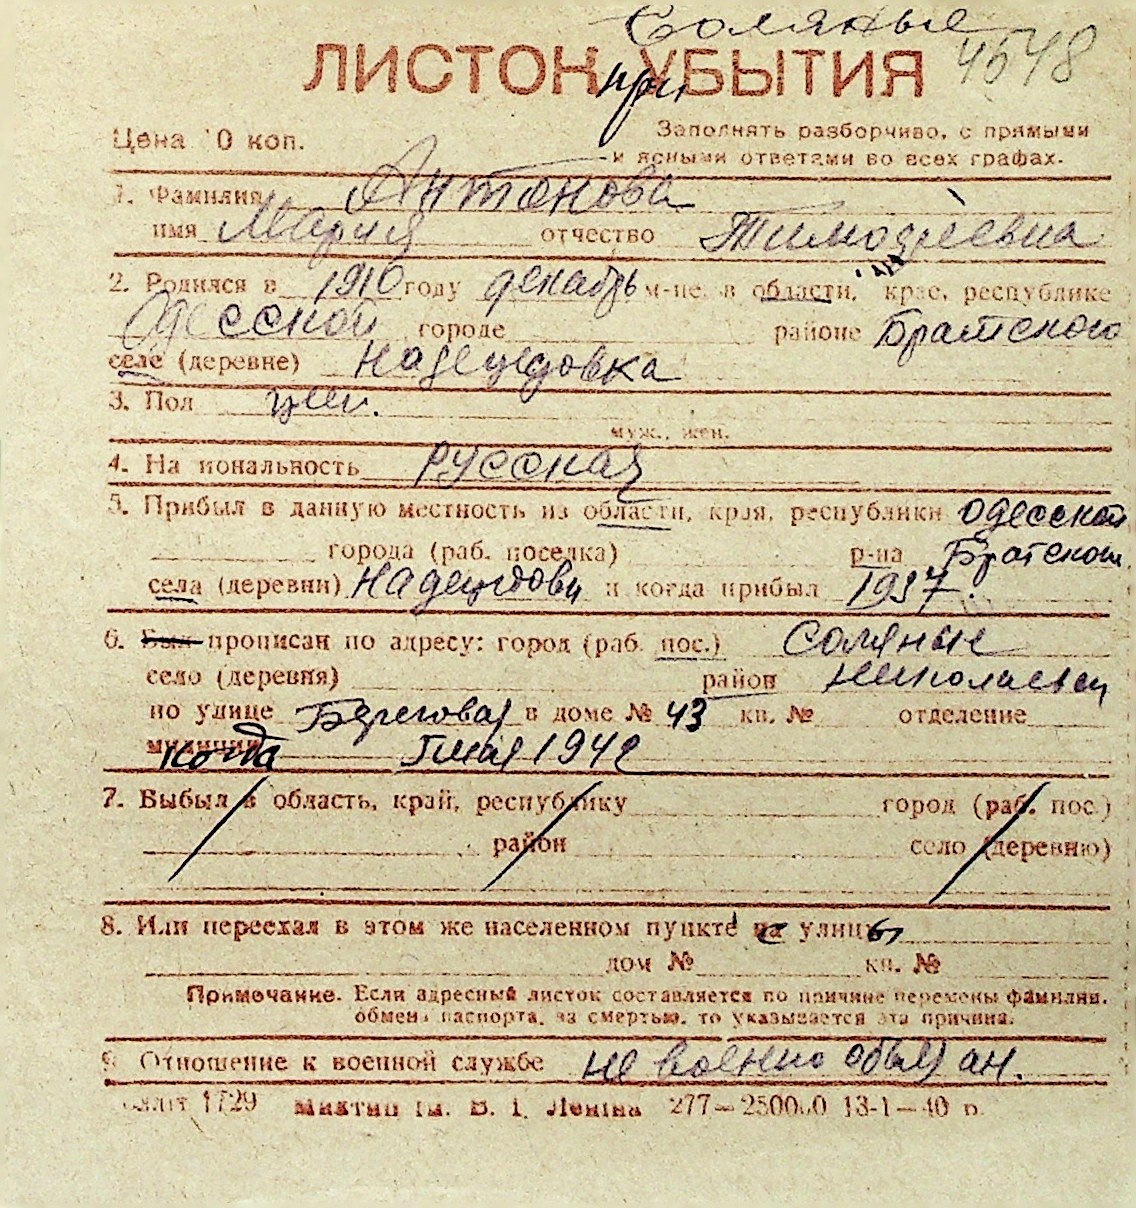 Соляные
ЛИСТОК УБЫТИЯ 4548
при
Цена 10 коп. Заполнять разборчиво, с прямыми
и ясными ответами во всех графах.
1. Фамилия Антонова
имя Мария отчество Тимофеевна
2. Родился в 1910 году декабрь м-це, в области, крае, республике
Одесской городе районе Братского
селе (деревне) Надеждовка
3. Пол жен.
муж., жен.
4. Национальность русская
5. Прибыл в данную местность из области, края, республики Одесской
города (раб. поселка) р-на Братском
села (деревни) Надеждовки и когда прибыл 1937.
6. Был прописан по адресу: город (раб. пос.) Соляные
село (деревня) район Николаевск
по улице Береговая в доме № 43 кв. № отделение
милиции когда 1 мая 1942
7. Выбыл в область, край, республику город (раб. пос.)
район село (деревню)
8. Или переехал в этом же населенном пункте с улицы
дом № кв. №
Примечание. Если адресный листок составляется по причине перемены фамилии,
обмена паспорта, за смертью, то указывается эта причина.
9. Отношение к военной службе не военно обязан.
1729 им. В. І. Леніна 277—250000 13-1—40 р.